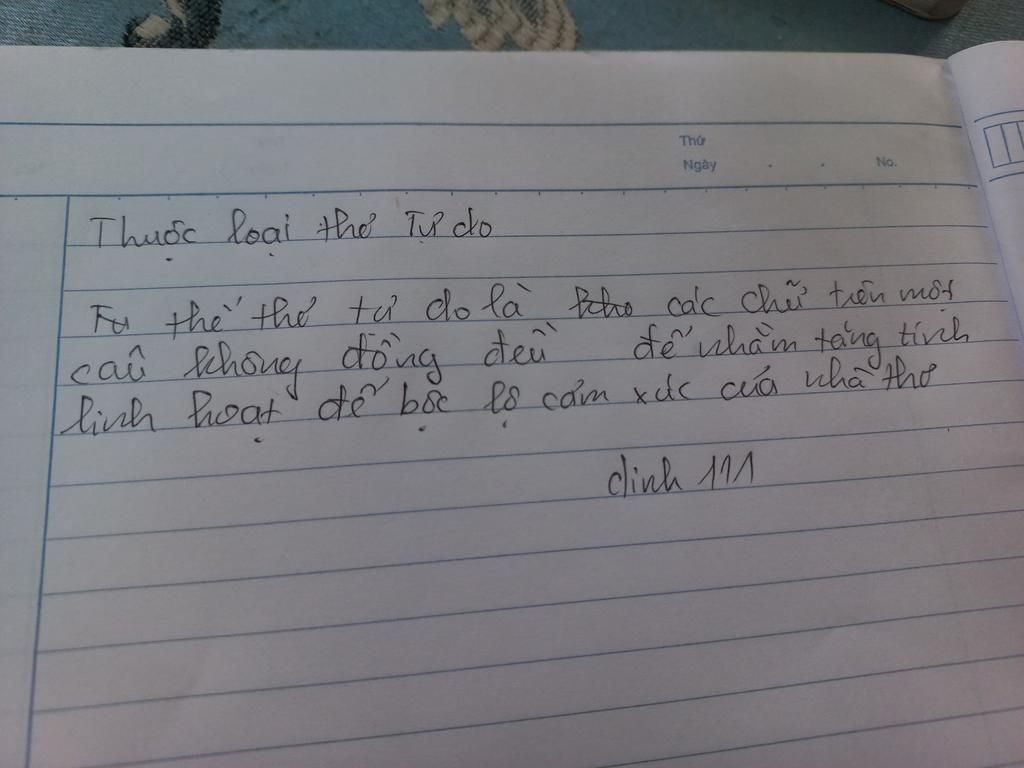 Thứ
Ngày . . No.
Thuộc loại thơ Tự do
thể thơ tự do là các chữ trên một
câu không đồng đều để nhằm tăng tính
linh hoạt để bộc lộ cảm xúc của nhà thơ
dinh 111